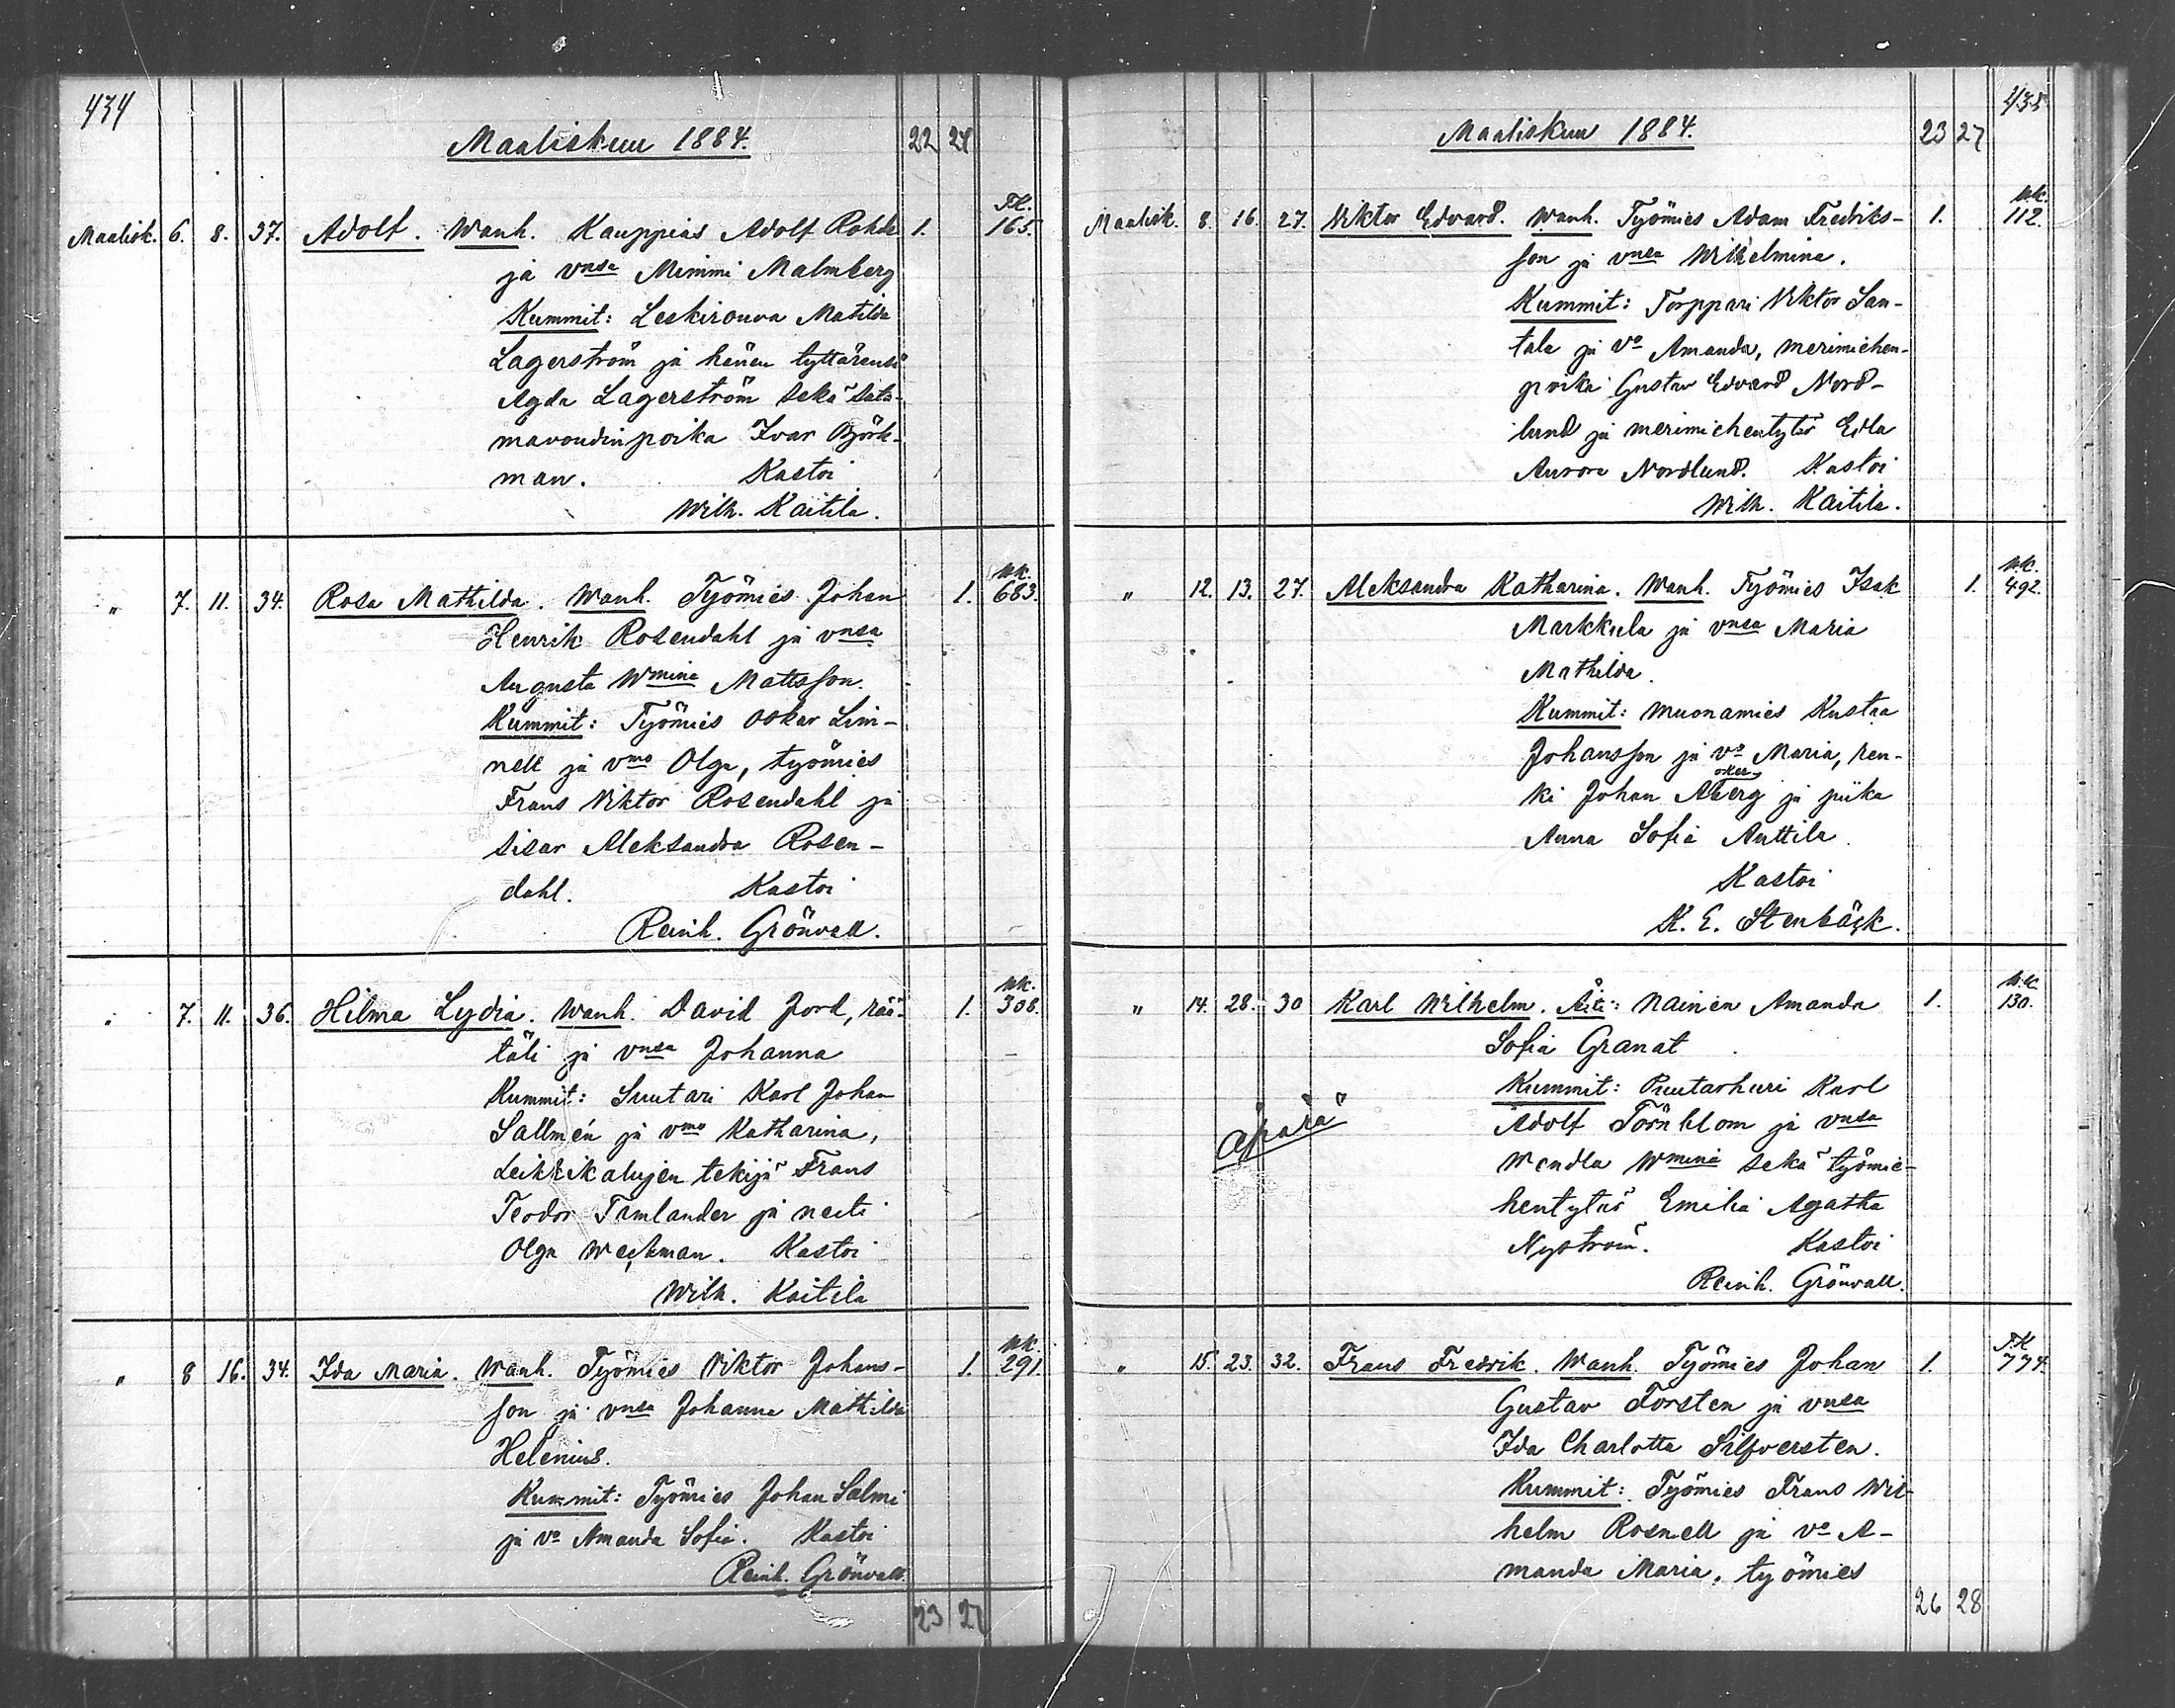 434
Maaliskuu 1884. 22 24
Maalisk. 6. 8. 37. Adolf. Wanh. Kauppias Adolf Rohde 1. FK. 165.
ja vnsa Mimmi Malmberg
Kummit: Leskirouva Matilda
Lagerström ja hänen tyttärensä
Agda Lagerström sekä sata-
mavoudinpoika Ivar Björk-
man. Kastoi
Wilh. Kaitila.
" 7. 11. 34. Rosa Mathilda. Wanh. Työmies Johan 1. UK. 683.
Henrik Rosendahl ja vnsa
Augusta Wmina Mattsson.
Kummit: Työmies Oskar Lin-
nell ja vmo Olga, työmies
Frans Viktor Rosendahl ja
sisar Aleksandra Rosen-
dahl. Kastoi
Reinh. Grönvall.
" 7. 11. 36. Hilma Lydia. Wanh. David Jord, rää- 1. UK. 308.
täli ja vnsa Johanna
Kummit: Suutari Karl Johan
Sallmén ja vmo Katharina,
Leikkikalujen tekijä Frans
Teodor Tamlander ja neiti
Olga Weckman. Kastoi
Wilh. Kaitila
" 8 16. 34. Ida Maria. Wanh. Työmies Viktor Johans- 1. UK. 291.
son ja vnsa Johanna Mathilda
Helenius.
Kummit: Työmies Johan Salmi
ja vo Amanda Sofia. Kastoi
Reinh. Grönvall.
23 27
435
Maaliskuu 1884. 23 27
Maalisk. 8. 16. 27. Viktor Edvard. Wanh. Työmies Adam Fredriks- 1. UK. 112.
son ja vnsa Wilhelmina.
Kummit: Torppari Viktor San-
tala ja vo Amanda, merimiehen-
poika Gustav Edvard Nord-
lund ja merimiehentytär Edla
Aurora Nordlund. Kastoi
Wilh. Kaitila.
" 12. 13. 27. Aleksandra Katharina. Wanh. Työmies Isak 1. UK. 492.
Markkula ja vnsa Maria
Mathilda.
Kummit: Muonamies Kustaa
Johansson ja vo Maria, ren-
ki Johan Åberg ja piika
Anna Sofia Anttila.
Kastoi
K. E. Stenbäck.
" 14. 28. 30 Karl Wilhelm. Äiti: Nainen Amanda 1. UK. 130.
Sofia Granat
Kummit: Puutarhuri Karl
äpärä
Adolf Törnblom ja vnsa
Wendla Wmina sekä työmie-
hentytär Emilia Agatha
Nyström. Kastoi
Reinh. Grönvall.
" 15. 23. 32. Frans Fredrik. Wanh. Työmies Johan 1. FK 774.
Gustav Forsten ja vnsa
Ida Charlotta Silfversten.
Kummit: Työmies Frans Wil-
helm Rosnell ja vo A-
manda Maria, työmies
26 28